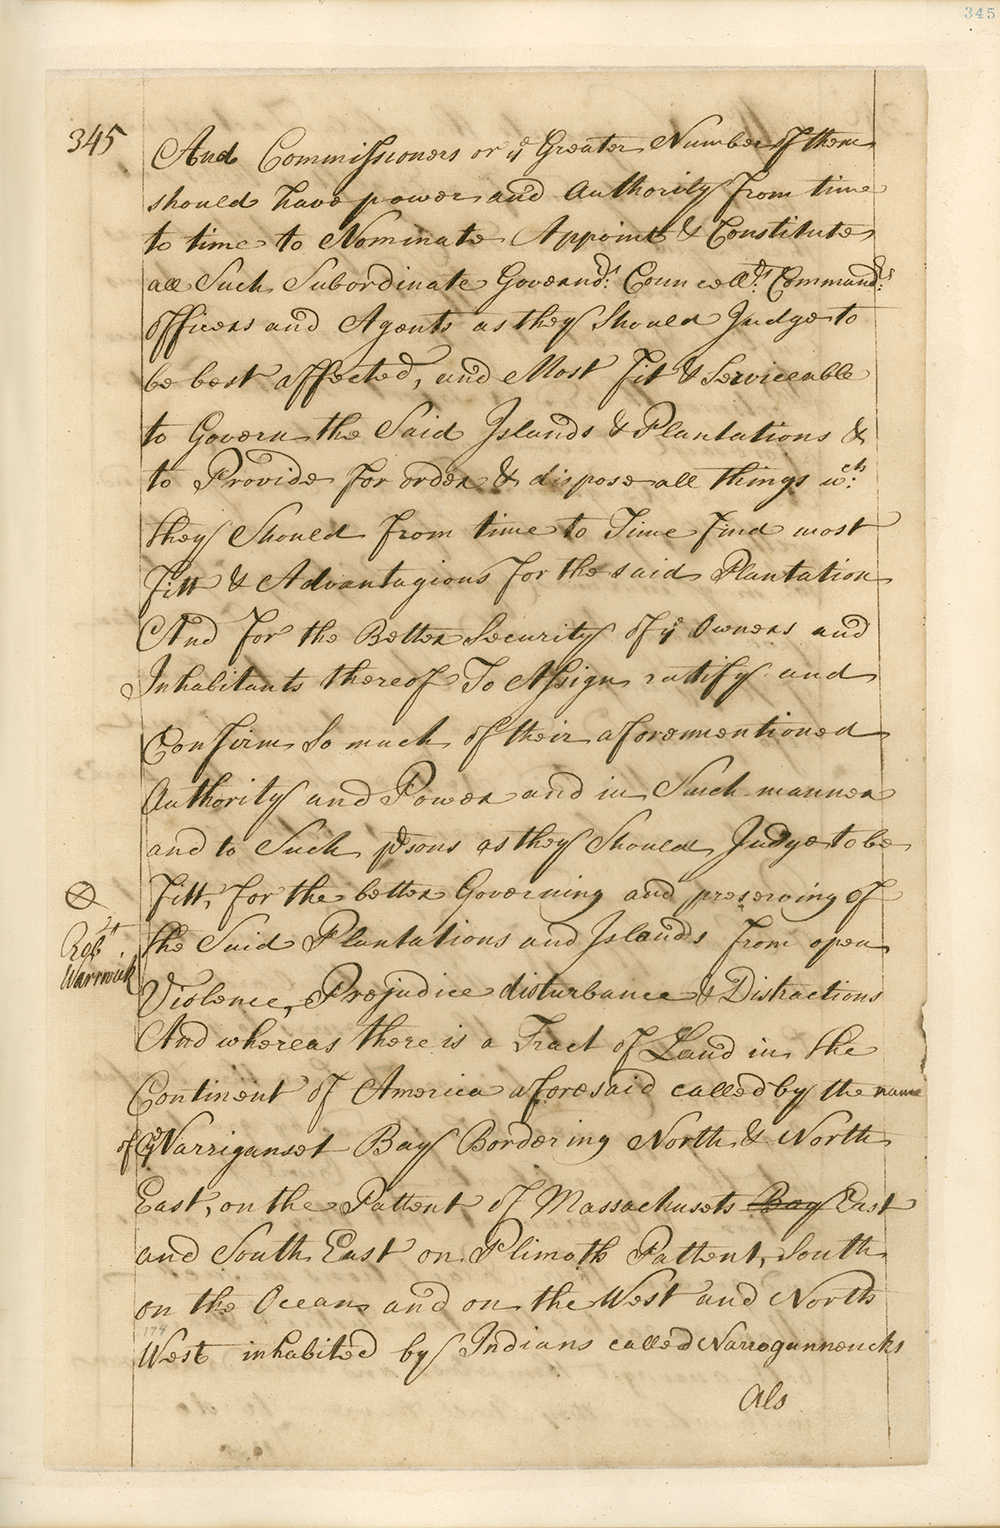 345
345
And Commissioners or yᵉ Greater Number of them
should have power and authority from time
to time to Nominate Appoint & Constitute
all Such Subordinate Governdʳˢ Councellʳˢ Commandʳˢ
officers and Agents as they Should Judge to
be best affected, and Most Fit & Serviceable
to Govern the Said Islands & Plantations &
to Provide for order & dispose all things wᶜʰ
they Should from time to Time find most
Fitt & Advantagious for the said Plantation
And for the Better Security of yᵉ Owners and
Inhabitants thereof To Assign ratify and
Confirm So much of their aforementioned
Authority and Power and in Such manner
and to Such psons as they Should Judge to be
Fitt, for the better Governing and preserving of
the Said Plantations and Islands from open
Violence, Prejudice disturbance & Distractions
And whereas there is a Tract of Land in the
Continent of America aforesaid called by the name
of yᵉ Narriganset Bay Bordering North & North
East, on the Pattent of Massachusets Bay East
and South East on Plimoth Pattent, South
on the Ocean and on the West and North
West inhabited by Indians called Narrogannencks
Als
Robᵗ
Warwick
174